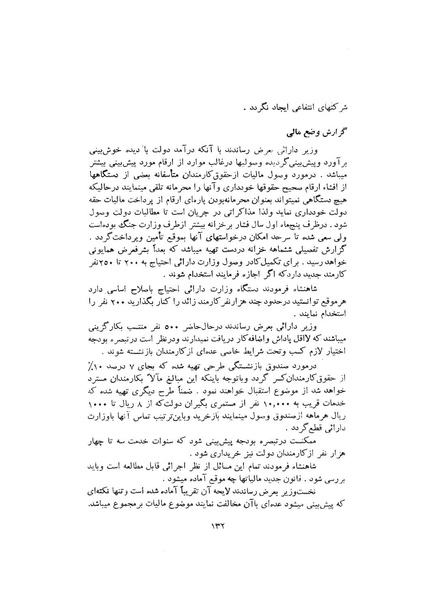 شرکتهای انتفاعی ایجاد نگردد .
گزارش وضع مالی
وزیر دارائی بعرض رساندند با آنکه درآمد دولت با دیده خوش‌بینی
برآورد و پیش‌بینی گردیده وصولیها درغالب موارد از ارقام مورد پیش‌بینی بیشتر
میباشد . درمورد وصول مالیات ازحقوق کارمندان متأسفانه بعضی از دستگاهها
از افشاء ارقام صحیح حقوقها خودداری وآنها را محرمانه تلقی مینمایند درحالیکه
هیچ دستگاهی نمیتواند بعنوان محرمانه‌بودن پاره‌ای ارقام از پرداخت مالیات حقه
دولت خودداری نماید ولذا مذاکراتی در جریان است تا مطالبات دولت وصول
شود . درظرف پنج‌ماه اول سال فشار برخزانه بیشتر ازطرف وزارت جنگ بوده‌است
ولی سعی شده تا سرحد امکان درخواستهای آنها بموقع تأمین وپرداخت گردد .
گزارش تفصیلی ششماهه خزانه دردست تهیه میباشد که بعداً بشرفعرض همایونی
خواهد رسید . برای تکمیل کادر وصول وزارت دارائی احتیاج به ۲۰۰ تا ۲۵۰نفر
کارمند جدید دارد که اگر اجازه فرمایند استخدام شوند .
شاهنشاه فرمودند دستگاه وزارت دارائی احتیاج باصلاح اساسی دارد
هرموقع توانستید درحدود چند هزارنفر کارمند زائد را کنار بگذارید ۲۰۰ نفر را
استخدام نمایند .
وزیر دارائی بعرض رساندند درحال‌حاضر ۵۰۰ نفر منتسب بکارگزینی
میباشند که لااقل پاداش واضافه‌کار دریافت نمیدارند ودرنظر است درتبصره بودجه
اختیار لازم کسب وتحت شرایط خاصی عده‌ای ازکارمندان بازنشسته شوند .
درمورد صندوق بازنشستگی طرحی تهیه شده که بجای ۷ درصد ۱۰٪
از حقوق کارمندان کسر گردد وباتوجه باینکه این مبالغ مآلاً بکارمندان مسترد
خواهد شد از موضوع استقبال خواهند نمود . ضمناً طرح دیگری تهیه شده که
خدمات قریب به ۱۰,۰۰۰ نفر از مستمری بگیران دولت که از ۸ ریال تا ۱۰۰۰
ریال هرماهه ازصندوق وصول مینمایند بازخرید وباین‌ترتیب تماس آنها باوزارت
دارائی قطع گردد .
ممکنست درتبصره بودجه پیش‌بینی شود که سنوات خدمت سه تا چهار
هزار نفر ازکارمندان دولت نیز خریداری شود .
شاهنشاه فرمودند تمام این مسائل از نظر اجرائی قابل مطالعه است وباید
بررسی شود . قانون جدید مالیاتها چه موقع آماده میشود .
نخست‌وزیر بعرض رساندند لایحه آن تقریباً آماده شده است وتنها نکته‌ای
که پیش‌بینی میشود عده‌ای باآن مخالفت نمایند موضوع مالیات برمجموع میباشد.
۱۳۲